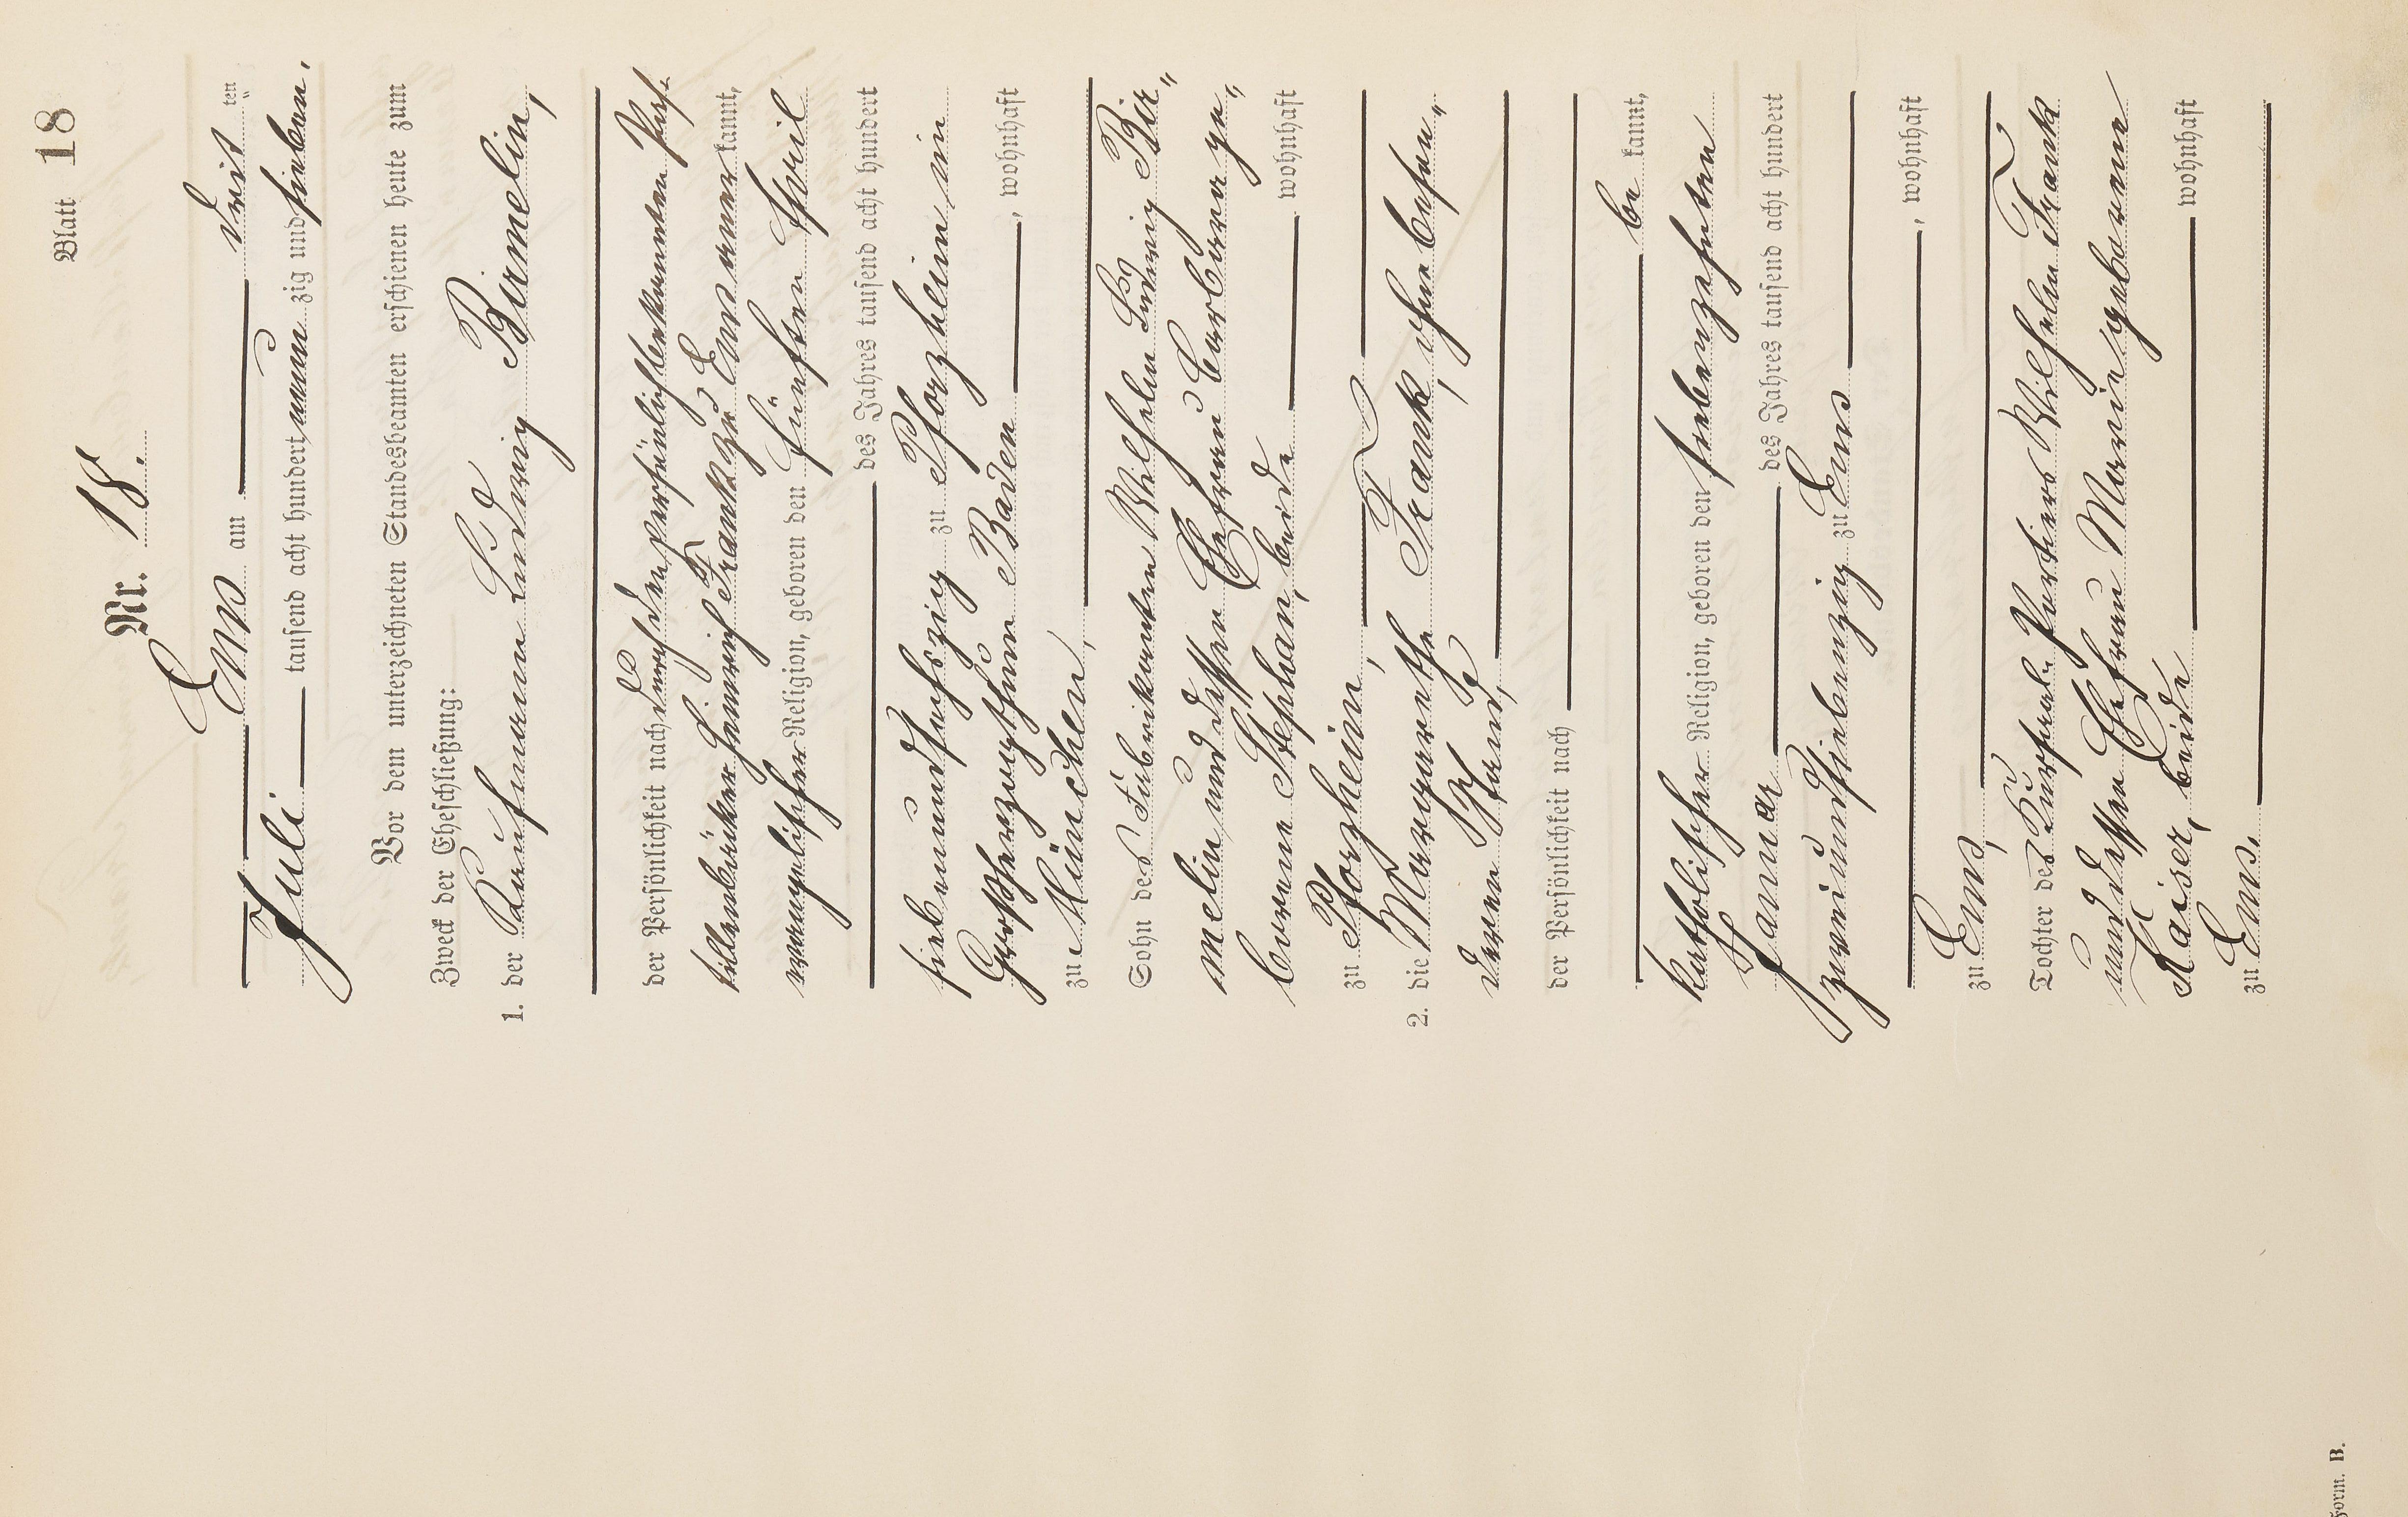 Blatt 18
Nr. 18.
Ems am drei ten
Juli tausend acht hundert neun zig und sieben.
Vor dem unterzeichneten Standesbeamten erschienen heute zum
Zweck der Eheschließung:
1. der Kaufmann Ludwig Birmelin,
der Persönlichkeit nach durch den persönlich bekannten
Heinrich Frank zu Ems aner kannt,
evangelischer Religion, geboren den fünften April
des Jahres tausend acht hundert
siebenundsechszig zu Pforzheim in
Großherzogthum Baden, wohnhaft
zu München,
Sohn des Fabrikanten Wilhelm Ludwig Bir„
melin und dessen Ehefrau Barbara ge„
borene Stephan, beide wohnhaft
zu Pforzheim,
2. die Margarethe Frank, ohne beson„
deren Stand,
der Persönlichkeit nach
be kannt,
katholischer Religion, geboren den siebenzehnten
Januar des Jahres tausend acht hundert
zweiundsiebenzig zu Ems
, wohnhaft
zu Ems,
Tochter des Kursaal-Portiers Wilhelm Frank
und dessen Ehefrau Maria geborene
Kaiser, beide wohnhaft
zu Ems.
Form. B.